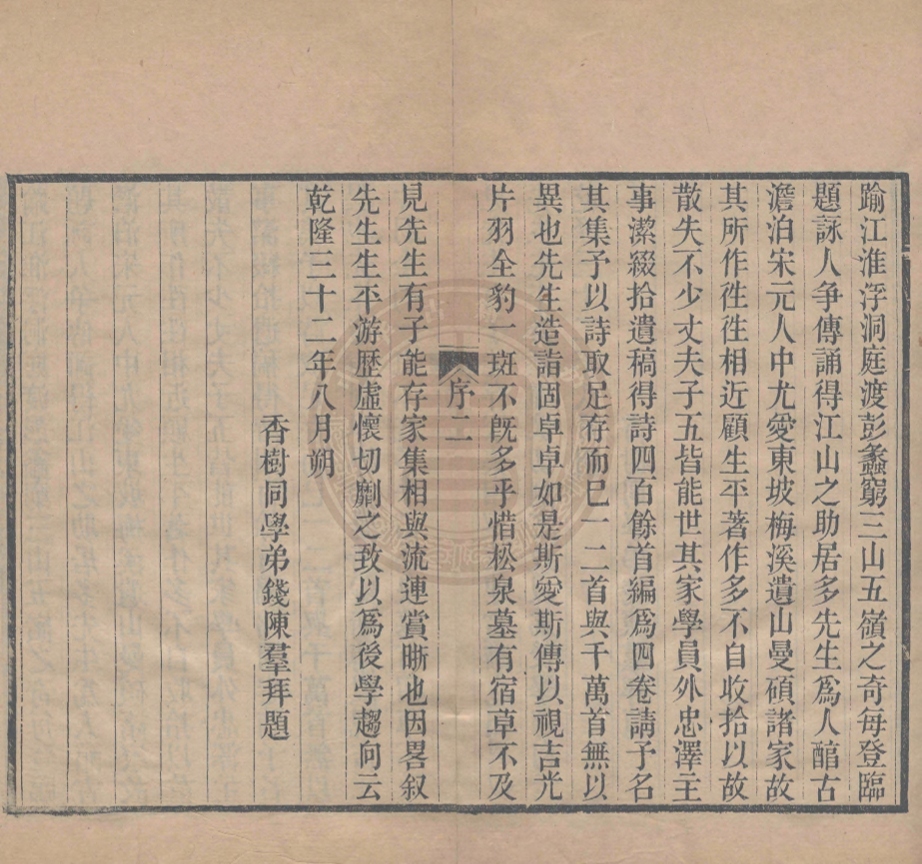 踰江淮浮洞庭渡彭蠡窮三山五嶺之奇每登臨
題詠人争傳誦得江山之助居多先生爲人醕古
澹泊宋元人中尤愛東坡梅溪遺山曼碩諸家故
其所作徃徃相近顧生平著作多不自收拾以故
散失不少丈夫子五皆能世其家學員外忠澤主
事潔綴拾遺稿得詩四百餘首編爲四卷請予名
其集予以詩取足存而已一二首與千萬首無以
異也先生造詣固卓卓如是斯愛斯傳以視吉光
片羽全豹一斑不旣多乎惜松泉墓有宿草不及
序二
見先生有子能存家集相與流連賞晰也因畧叙
先生生平游歷虛懷切劘之致以爲後學趨向云
乾隆三十二年八月朔
香樹同學弟錢陳羣拜題